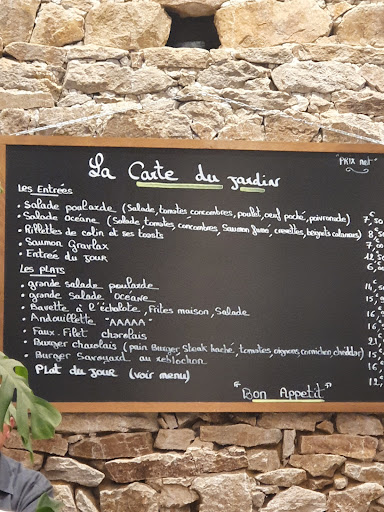 La Carte du jardin
Prix net
Les Entrées
• Salade poularde (Salade, tomates concombres, poulet, oeuf poché, poivronade) 7,
• Salade océane (Salade, tomates, concombres, Saumon fumé, crevettes, beignets calamars) 8,
• Rillettes de colin et ses toasts 7,
• Saumon Gravlax 12,
• Entrée du jour 6,
Les plats
• grande salade poularde 14
• grande salade océane 15
• Bavette à l'échalote, Frites maison, Salade 16
• Andouillette "AAAAA" 16
• Faux-Filet charolais 21
• Burger charolais (pain Burger, Steak haché, tomates oignons, cornichon, cheddar) 15
• Burger Savoyard au reblochon 16
Plat du jour (voir menu) 12
"Bon Appetit"